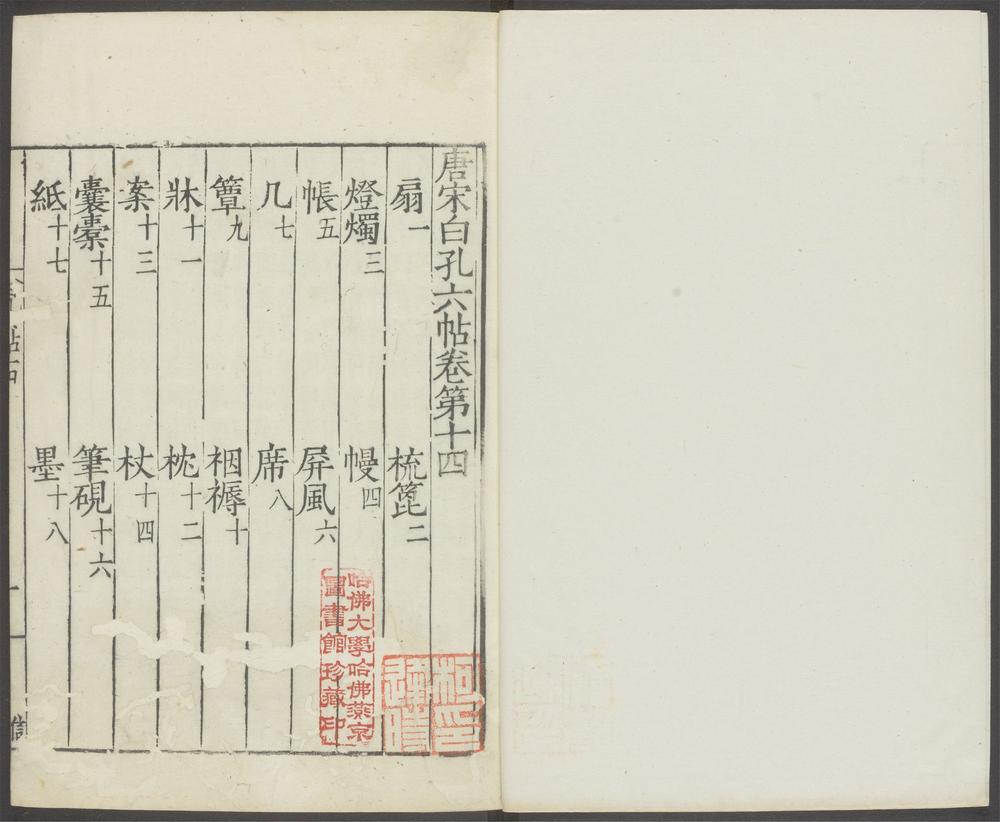 唐宋白孔六帖卷第十四
扇一 梳篦二
燈燭三 幔四
帳五 屏風六
几七 席八
簟九 裀褥十
牀十一 枕十二
案十三 杖十四
囊橐十五 筆硯十六
紙十七 墨十八
哈佛大學哈佛燕京
圖書館珍藏印